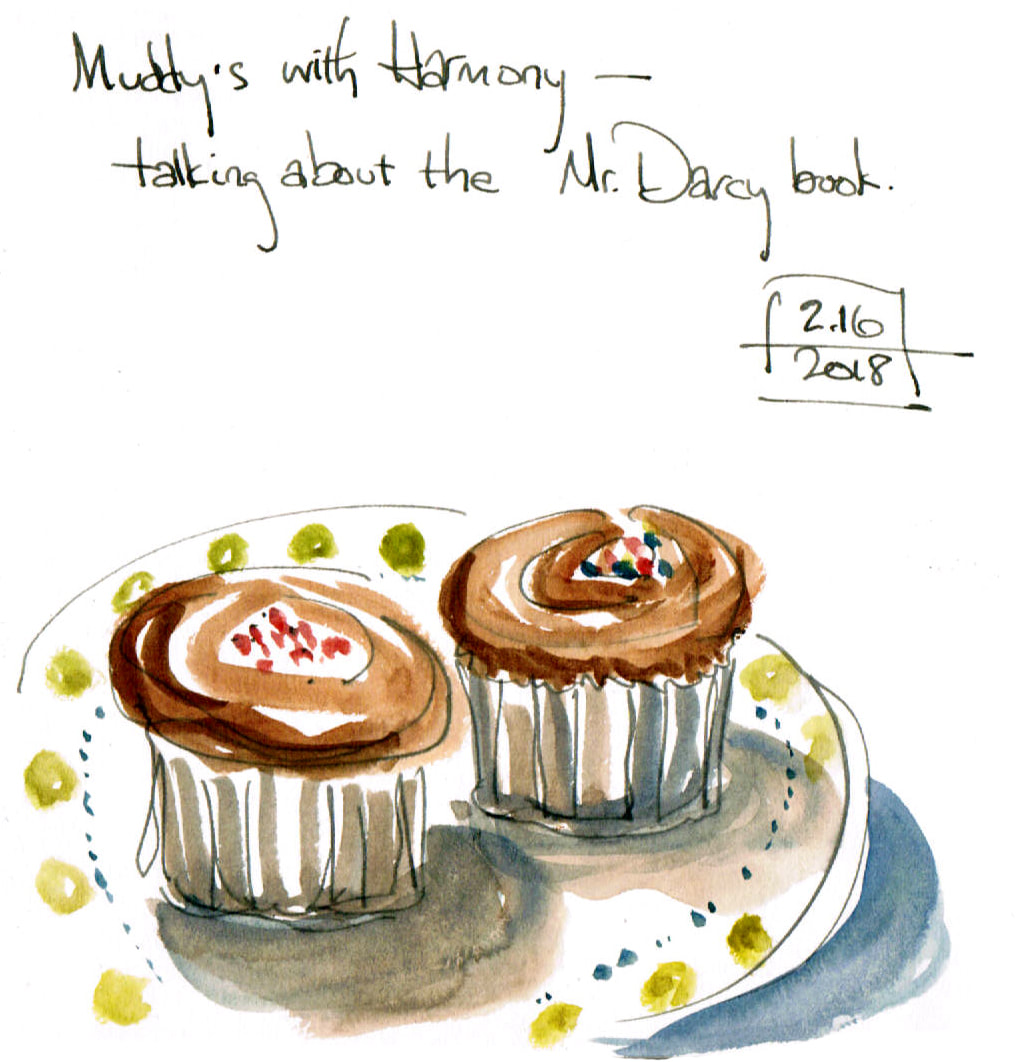 Muddy's with Harmony —
talking about the Mr. Darcy book.
2.16
2018